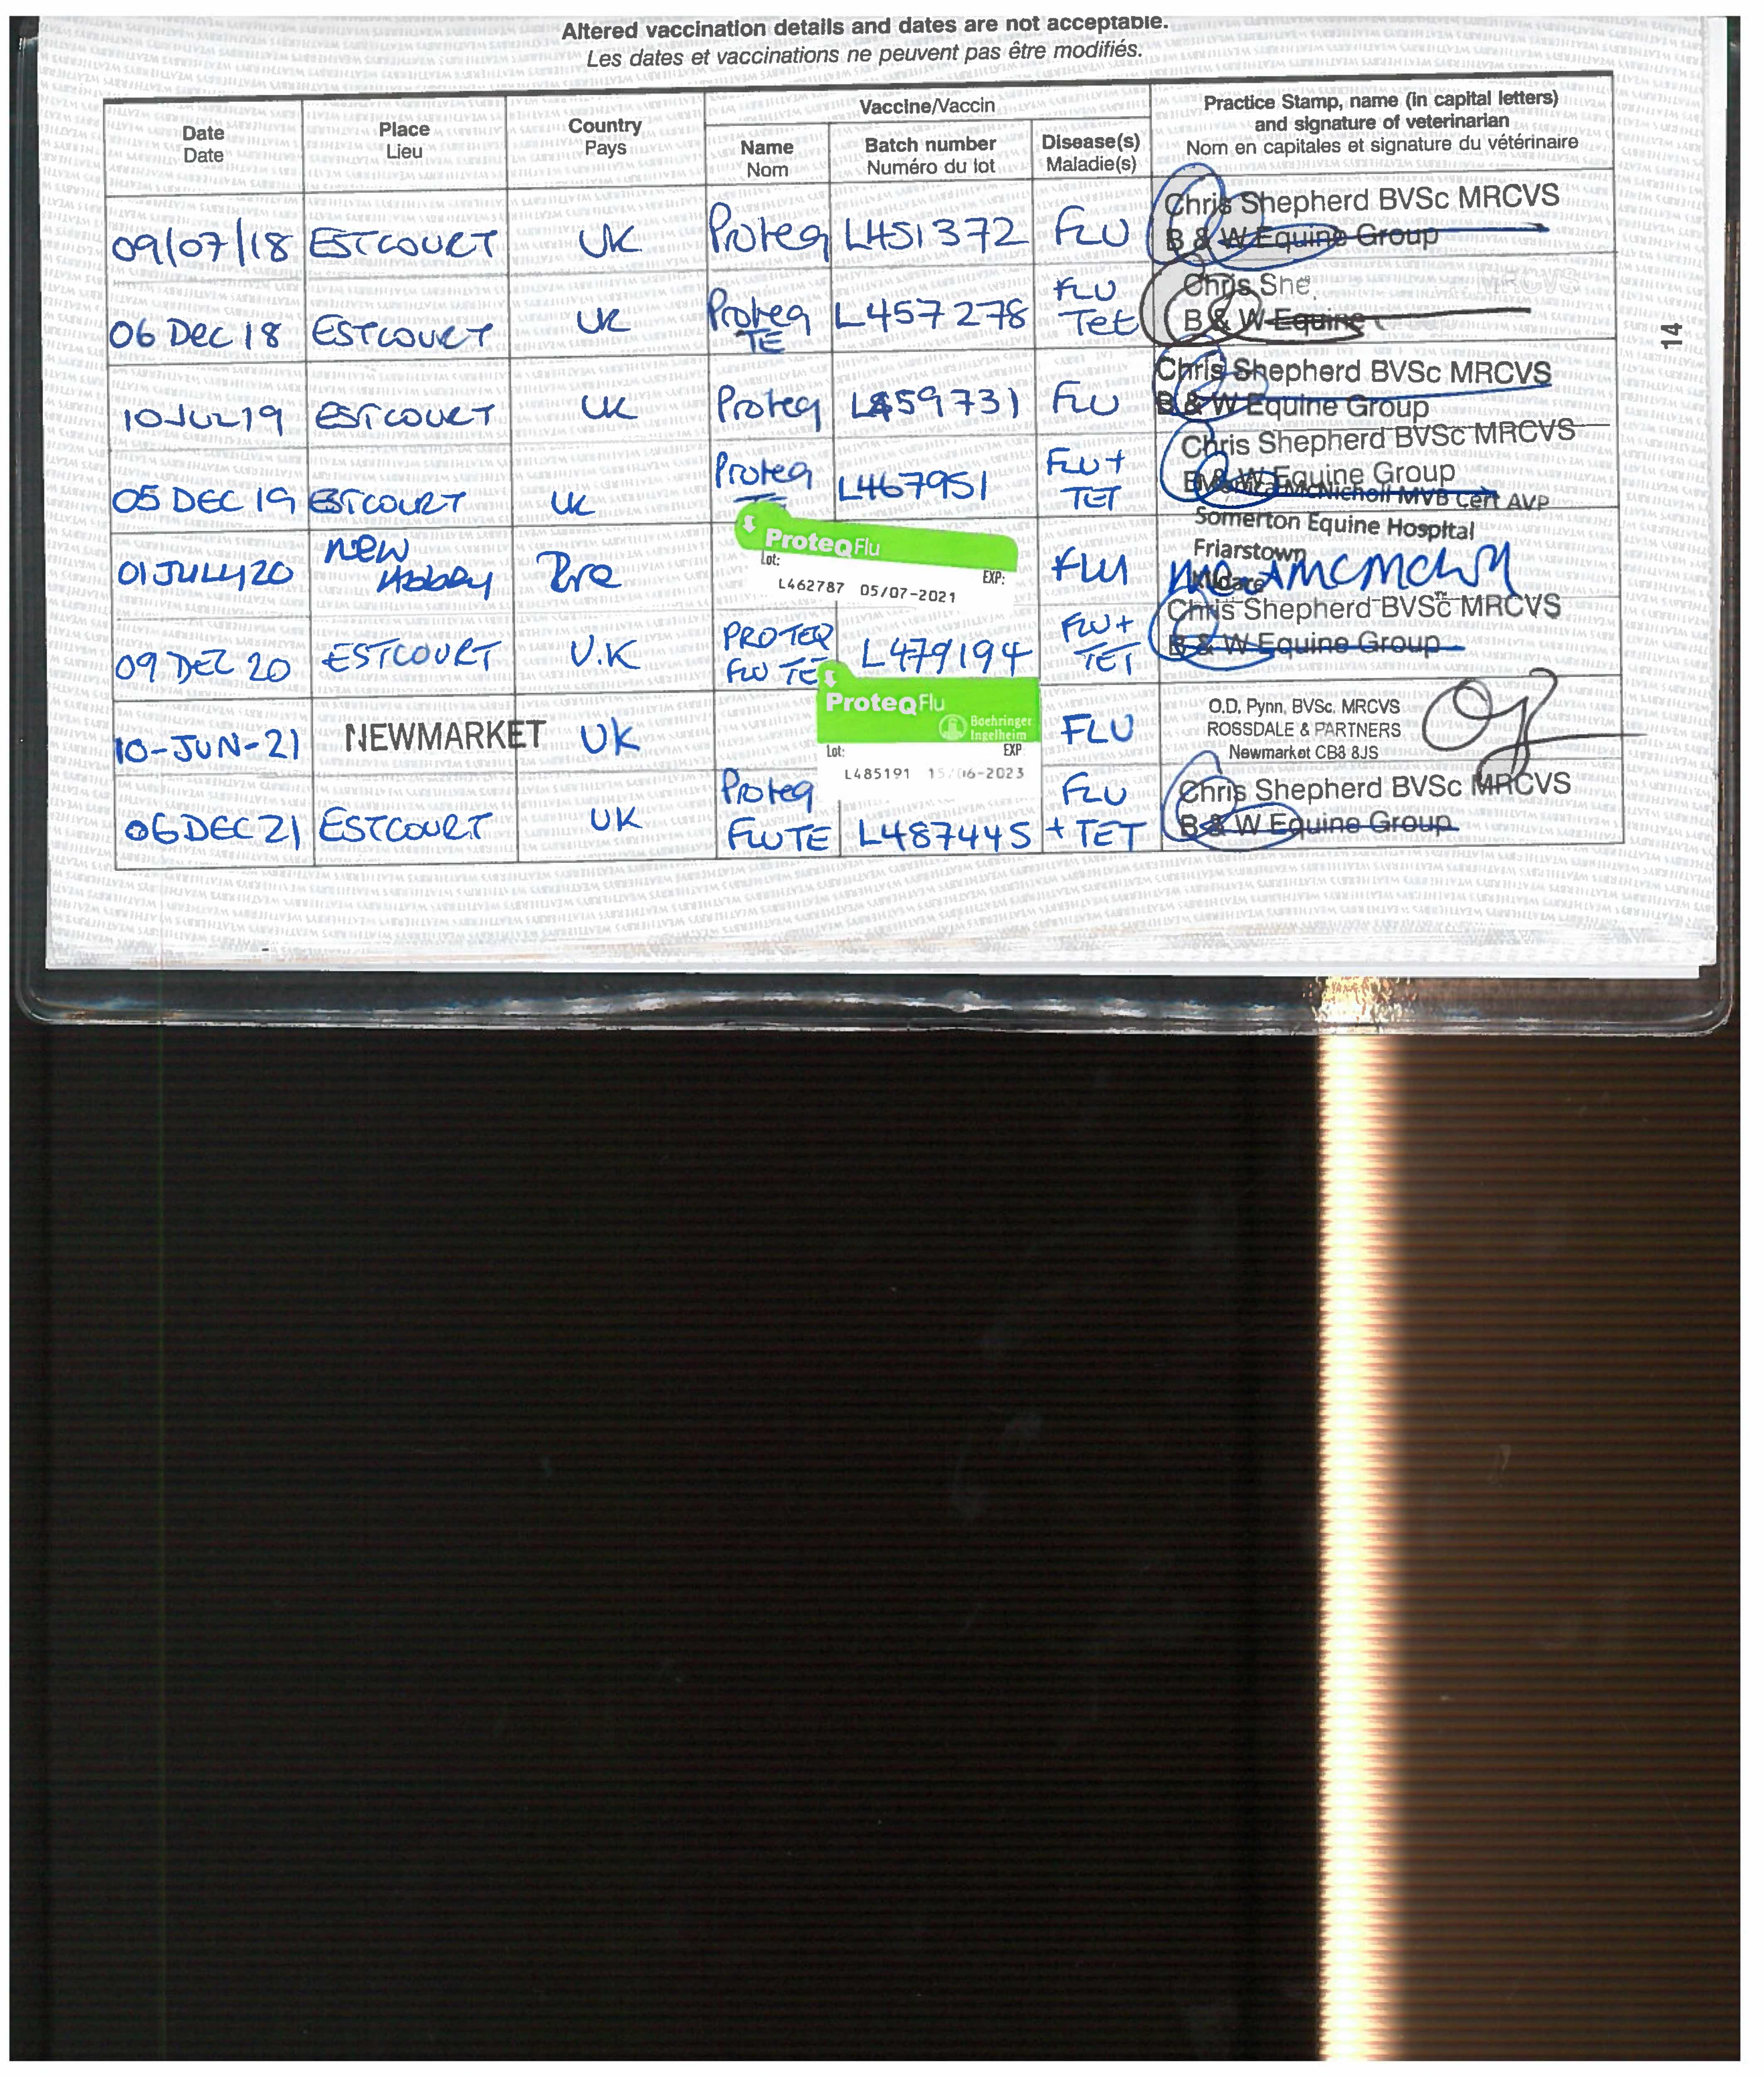 Altered vaccination details and dates are not acceptable.
Les dates et vaccinations ne peuvent pas être modifiés.
Date
Date
Place
Lieu
Country
Pays
Vaccine/Vaccin
Name
Nom
Batch number
Numéro du lot
Disease(s)
Maladie(s)
Practice Stamp, name (in capital letters)
and signature of veterinarian
Nom en capitales et signature du vétérinaire
09/07/18 ESTCOURT UK Proteq L451372 FLU
Chris Shepherd BVSc MRCVS
B & W Equine Group
06 Dec 18 ESTCOURT UK Proteq TE L457278 FLU Tet
Chris She MRCVS
B & W Equine
14
10 JUL 19 ESTCOURT UK Proteq L459731 FLU
Chris Shepherd BVSc MRCVS
B & W Equine Group
05 DEC 19 ESTCOURT UK Proteq TE L467951 FLU + TET
Chris Shepherd BVSc MRCVS
B & W Equine Group
McNicholl MVB Cert AVP
Somerton Equine Hospital
Friarstown
Kildare
01 JULY 20 new Abbey Ire FLU
ProteqFlu
Lot: EXP:
L462787 05/07-2021
09 DEZ 20 ESTCOURT U.K PROTEQ FLU TE L479194 FLU + TET
Chris Shepherd BVSc MRCVS
B & W Equine Group
10-JUN-21 NEWMARKET UK FLU
ProteqFlu
Boehringer
Ingelheim
Lot: EXP
L485191 15/06-2023
O.D. Pynn, BVSc, MRCVS
ROSSDALE & PARTNERS
Newmarket CB8 8JS
06 DEC 21 ESTCOURT UK Proteq FLUTE L487445 FLU + TET
Chris Shepherd BVSc MRCVS
B & W Equine Group